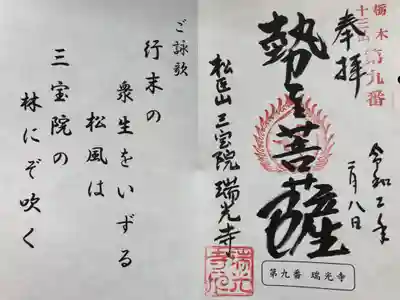 栃木
十三仏
第九番
奉拝
勢至菩薩
令和二年
二月八日
松尾山 三宝院 瑞光寺
第九番 瑞光寺
ご詠歌
行末の
衆生をいずる
松風は
三宝院の
林にぞ吹く